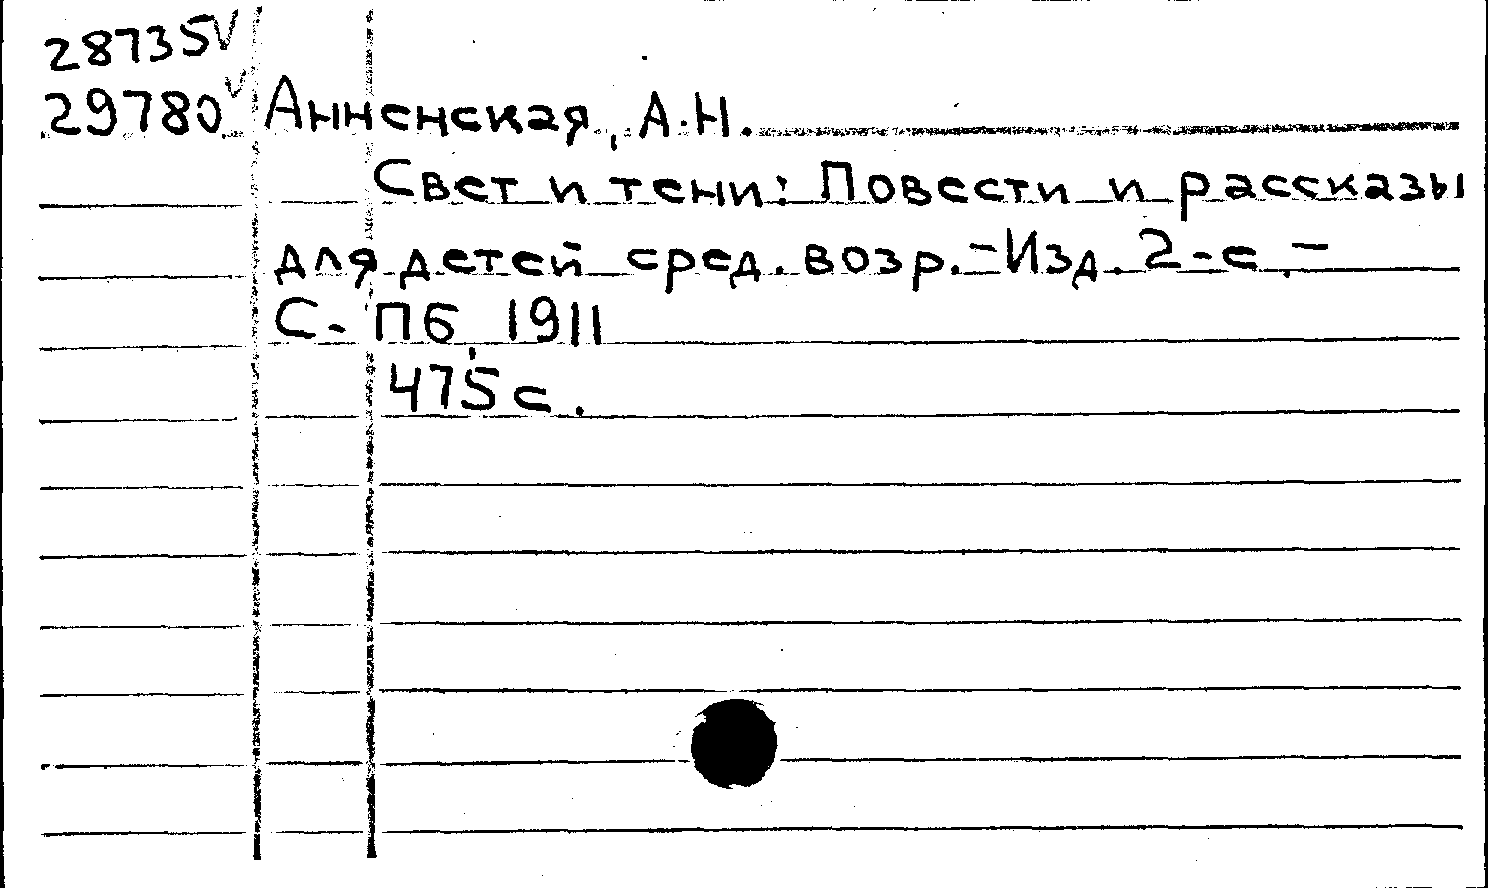 28735 V
29780 V Анненская, А.Н.
Свет и тени: Повести и рассказы
для детей сред. возр. - Изд. 2-е. -
С.-Пб, 1911
475 с.